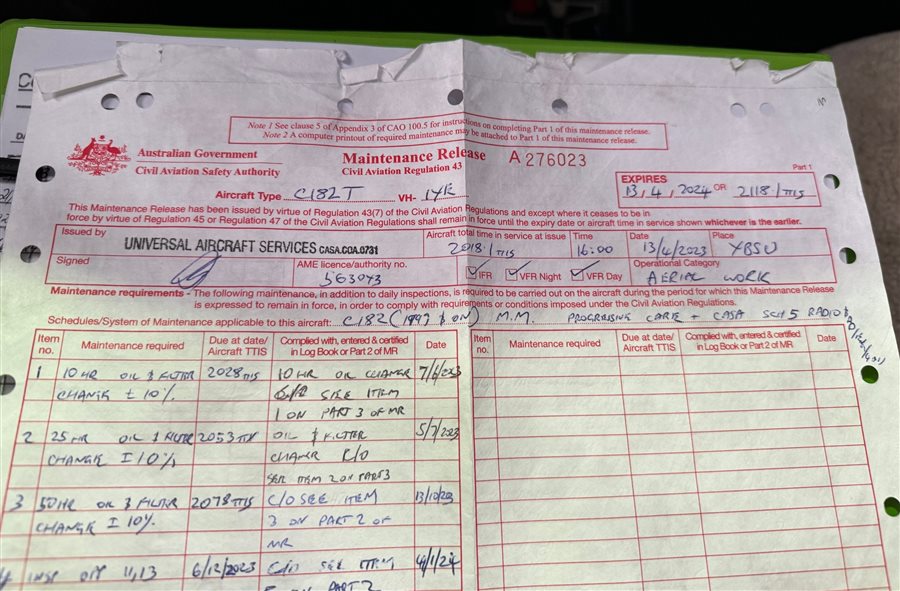 Note 1 See clause 5 of Appendix 3 of CAO 100.5 for instructions on completing Part 1 of this maintenance release.
Note 2 A computer printout of required maintenance may be attached to Part 1 of this maintenance release.
Australian Government
Civil Aviation Safety Authority
Maintenance Release
Civil Aviation Regulation 43
A 276023
Part 1
Aircraft Type C182T VH- IYE
EXPIRES
13, 4, 2024 OR 2118.1 TTIS
This Maintenance Release has been issued by virtue of Regulation 43(7) of the Civil Aviation Regulations and except where it ceases to be in
force by virtue of Regulation 45 or Regulation 47 of the Civil Aviation Regulations shall remain in force until the expiry date or aircraft time in service shown whichever is the earlier.
Issued by
UNIVERSAL AIRCRAFT SERVICES CASA.COA.0731
Aircraft total time in service at issue
2018.1 TTIS
Time
16:00
Date
13/4/2023
Place
YBSU
Signed
AME licence/authority no.
563043
IFR
VFR Night
VFR Day
Operational Category
AERIAL WORK
Maintenance requirements - The following maintenance, in addition to daily inspections, is required to be carried out on the aircraft during the period for which this Maintenance Release
is expressed to remain in force, in order to comply with requirements or conditions imposed under the Civil Aviation Regulations.
Schedules/System of Maintenance applicable to this aircraft: C182 (1997 & ON) M.M. PROGRESSING CARE + CASA SCH 5 RADIO &
Item no. Maintenance required Due at date/ Aircraft TTIS Complied with, entered & certified in Log Book or Part 2 of MR Date
Item no. Maintenance required Due at date/ Aircraft TTIS Complied with, entered & certified in Log Book or Part 2 of MR Date
1 10 HR OIL & FILTER 2028 TTIS 10 HR OIL CHANGE
CHANGE ± 10% SEE ITEM
1 ON PART 3 OF MR
2 25 HR OIL & FILTER 2053 TTIS OIL & FILTER 5/7/2023
CHANGE ± 10% CHANGE C/O
SEE ITEM 2 ON PART 3
3 50 HR OIL & FILTER 2078 TTIS C/O SEE ITEM 13/10/23
CHANGE ± 10% 3 ON PART 2 OF
MR
4 INSP OPS 11,13 6/12/2023 C/O SEE ITEM 4/1/24
ON PART 2